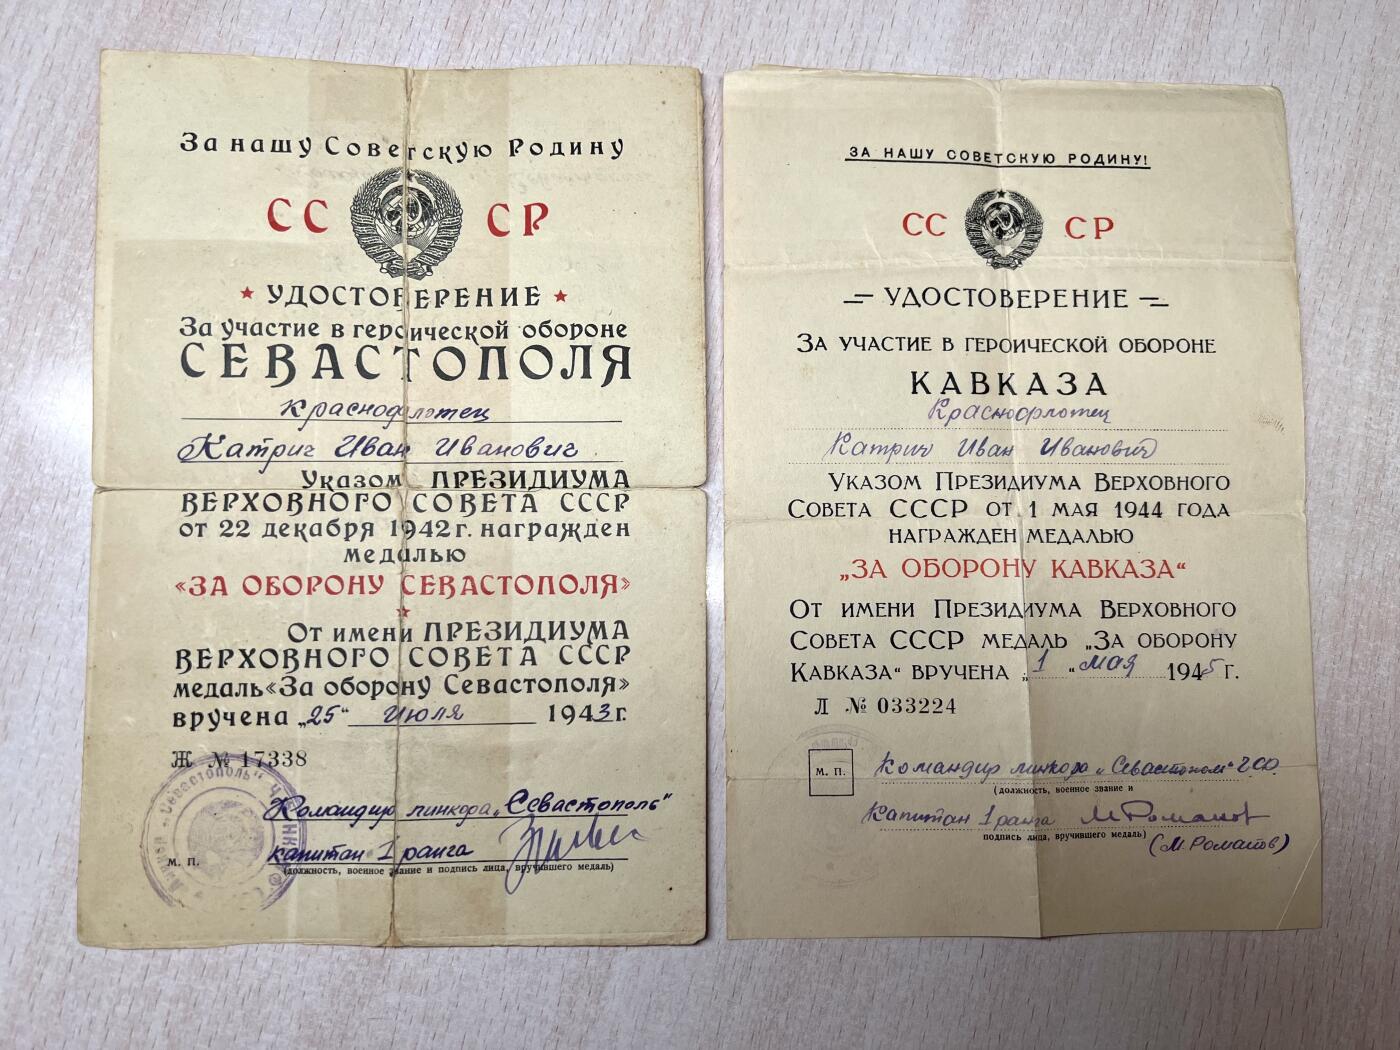 За нашу Советскую Родину
СС СР
УДОСТОВЕРЕНИЕ
За участие в героической обороне
СЕВАСТОПОЛЯ
Краснофлотец
Катрич Иван Иванович
Указом ПРЕЗИДИУМА
ВЕРХОВНОГО СОВЕТА СССР
от 22 декабря 1942 г. награжден
медалью
«ЗА ОБОРОНУ СЕВАСТОПОЛЯ»
От имени ПРЕЗИДИУМА
ВЕРХОВНОГО СОВЕТА СССР
медаль «За оборону Севастополя»
вручена „25“ июля 1943 г.
Ж № 17338
Командир линкора „Севастополь"
капитан 1 ранга
М. П.
(должность, военное звание и подпись лица, вручившего медаль)
„Севастополь"
ЗА НАШУ СОВЕТСКУЮ РОДИНУ!
СС СР
УДОСТОВЕРЕНИЕ
ЗА УЧАСТИЕ В ГЕРОИЧЕСКОЙ ОБОРОНЕ
КАВКАЗА
Краснофлотец
Катрич Иван Иванович
УКАЗОМ ПРЕЗИДИУМА ВЕРХОВНОГО
СОВЕТА СССР ОТ 1 МАЯ 1944 ГОДА
НАГРАЖДЕН МЕДАЛЬЮ
„ЗА ОБОРОНУ КАВКАЗА“
ОТ ИМЕНИ ПРЕЗИДИУМА ВЕРХОВНОГО
СОВЕТА СССР МЕДАЛЬ „ЗА ОБОРОНУ
КАВКАЗА“ ВРУЧЕНА „1“ мая 1945 г.
Л № 033224
М. П.
Командир линкора „Севастополь"
(должность, военное звание и
Капитан 1 ранга М Романов
подпись лица, вручившего медаль)
(М. Романов)